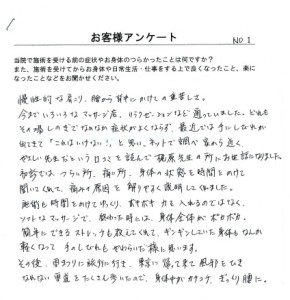 お客様アンケート NO 1
当院で施術を受ける前の症状やお身体のつらかったことは何ですか？
また、施術を受けてからお身体や日常生活・仕事をする上で良くなったこと、楽に
なったことなどをお聞かせください。
慢性的な肩こり、腰から背中にかけての重苦しさ。
今までいろいろなマッサージ店、リラクゼーションなど通っていました。どれも
その場しのぎでなかなか症状がよくならず、最近では手にしびれが
出てきて「これはいけない！」と思い、ネットで調べ家から近く、
やさしい先生だという口コミを読んで梶原先生の所にお世話になりました。
初診では、つらい所、痛い所、身体の状態を時間をかけて
聞いてくれて、痛みの原因を解りやすく説明してくれました。
施術も時間をかけてゆっくり、ボキボキ力を入れるのではなく、
ソフトなマッサージで、終わった時には、身体全体がポカポカ。
簡単にできるストレッチも教えてくれて、ギシギシしていた身体もなんか
軽くなって手のしびれもやわらいだ様に思います。
その後、車で旅行に行き、東京に帰って来て風邪をひき
なれない重量をたくさん歩いたので、身体中がガチコチ、ぎっくり腰に。